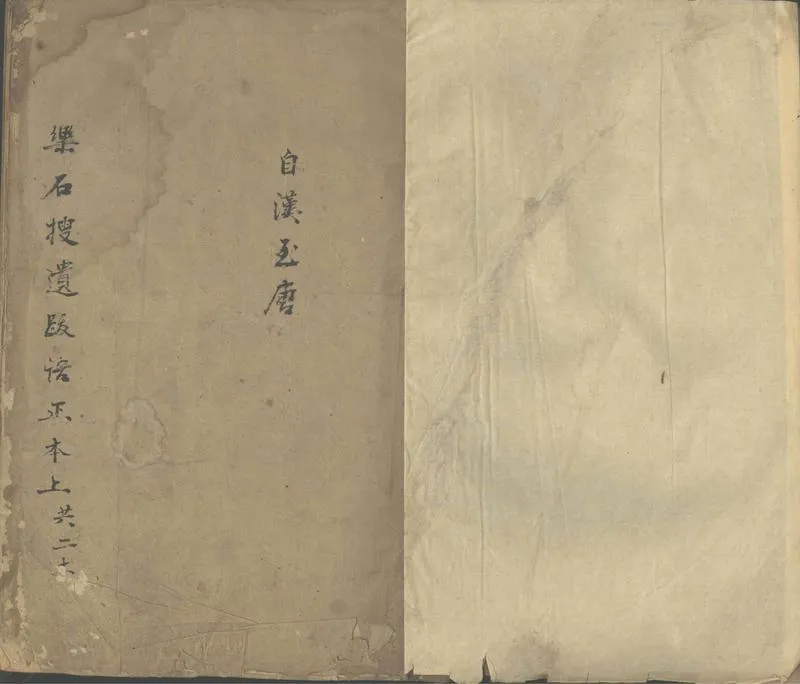 自漢至唐
樂石搜遺跋語正本上共二